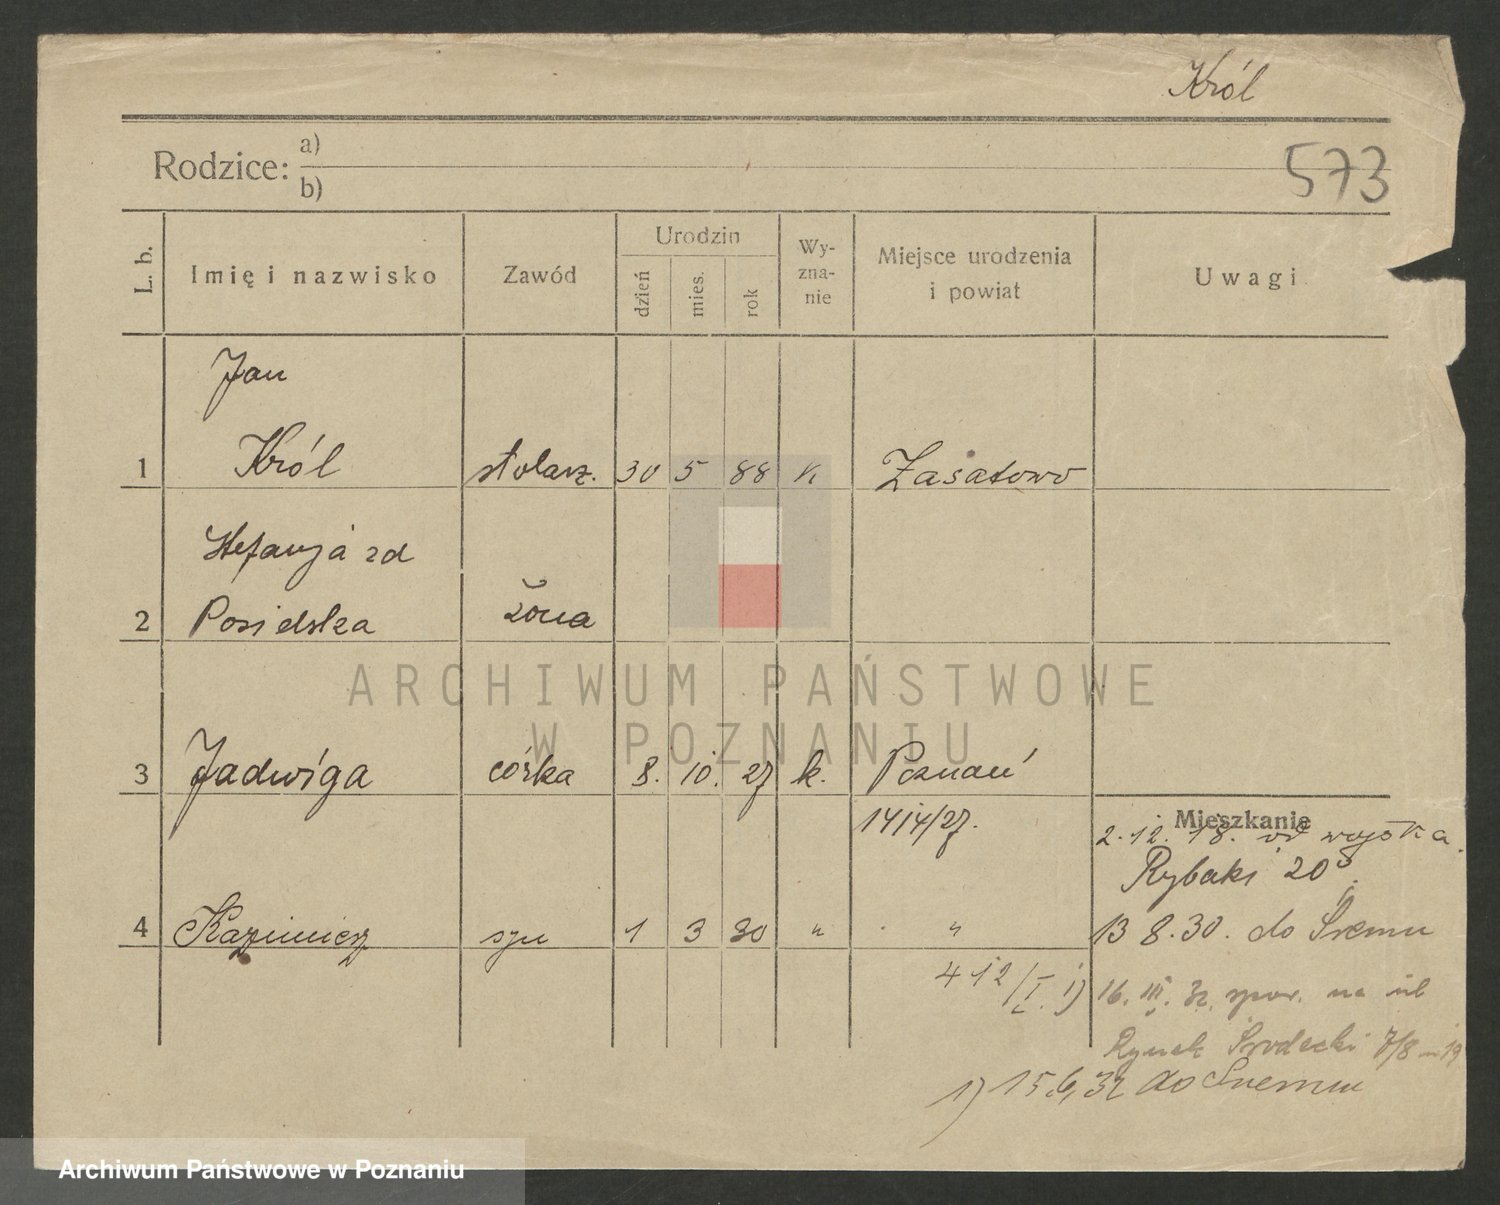 Król
573
Rodzice: a)
b)
L. b.
Imię i nazwisko
Zawód
Urodzin
dzień
mies.
rok
Wy-
zna-
nie
Miejsce urodzenia
i powiat
Uwagi
Jan
1 Król stolarz. 30 5 88 k Zasatowo
Stefanja zd
2 Posielska żona
ARCHIWUM PAŃSTWOWE
W POZNANIU
3 Jadwiga córka 8. 10. 27 k. Poznań
1414/27.
Mieszkanie
2.12.18. od wojska.
Rybaki 20
4 Kazimierz syn 1 3 30 " "
13 8.30. do Śremu
412/I. 1)
16. III. 32. spow. na ul
Rynek Środecki 7/8 m 19
1) 15.6.32 do Śremu
Archiwum Państwowe w Poznaniu